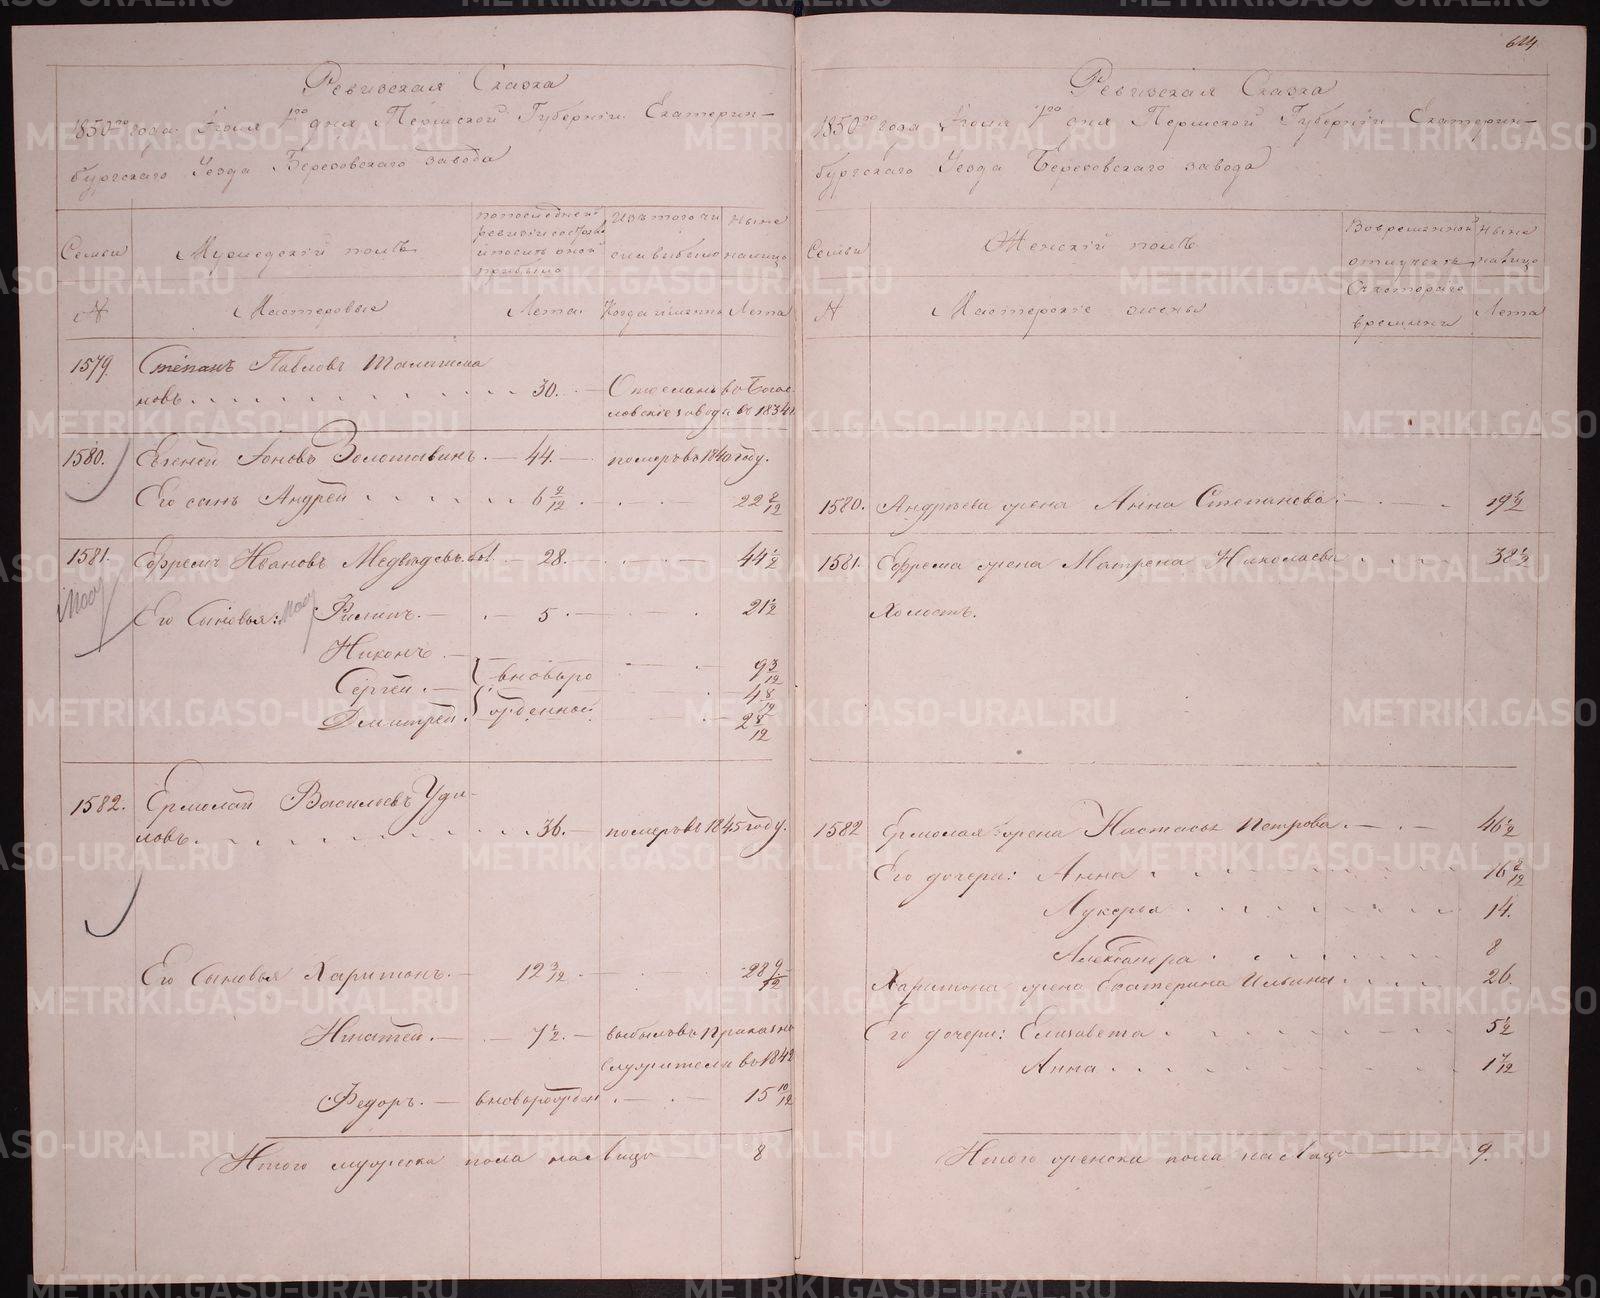 624
Ревизская Сказка
1850го года Июля 1го дня Пермской Губернiи Екатерин-
бургскаго Уезда Березовскаго завода
Семьи
№
Мужедскiй полъ
Мастеровые
Лета
Изъ того чи
сла выбыло
Когда именно
Ныне
налицо
Лета
1579. Степанъ Павловъ Талашма
новъ 30. Отосланъ во Богос
ловскiе завода въ 1834
1580. Евгеней Iоновъ Золотавинъ. 44. померъ въ 1840 году.
Его сынъ Андрей 6 9/12 22 2/12
1581. Ефремъ Ивановъ Медведевъ 28. 44 1/2
Его Сыновья: Филипъ. 5 21 1/2
Никонъ. 9 3/12
Сергей. вновь ро 4 8/12
Дмитрей. жденной 2 8/12
1582. Ермолай Васильевъ Уди-
ловъ. 36. померъ въ 1845 году.
Его Сыновья Харитонъ. 12 3/12 28 9/12
Игнатей. 7 1/2. выбылъ въ Приказно
служители въ 1842
Федоръ. вноворожден 15 10/12
Итого мужеска пола налицо 8
Ревизская Сказка
1850го года Июля 1го дня Пермской Губернiи Екатерин-
бургскаго Уезда Березовскаго завода
Семьи
№
Женскiй полъ
Мастерскiе жены
Вовременной
отлучкъ
Скоторого
времени
Ныне
налицо
Лета
1580. Андреева жена Анна Степанова 19 1/2
1581. Ефрема жена Матрена Николаева 38 1/2
Холостъ.
1582 Ермолая жена Настасья Петрова. 46 1/2
Его дочери: Анна 16 2/12
Лукерья 14.
Александра 8
Харитона жена Екатерина Ильина 26.
Его дочери: Елизавета 5 1/2
Анна 1 7/12
Итого женска пола налицо 9.
METRIKI.GASO-URAL.RU